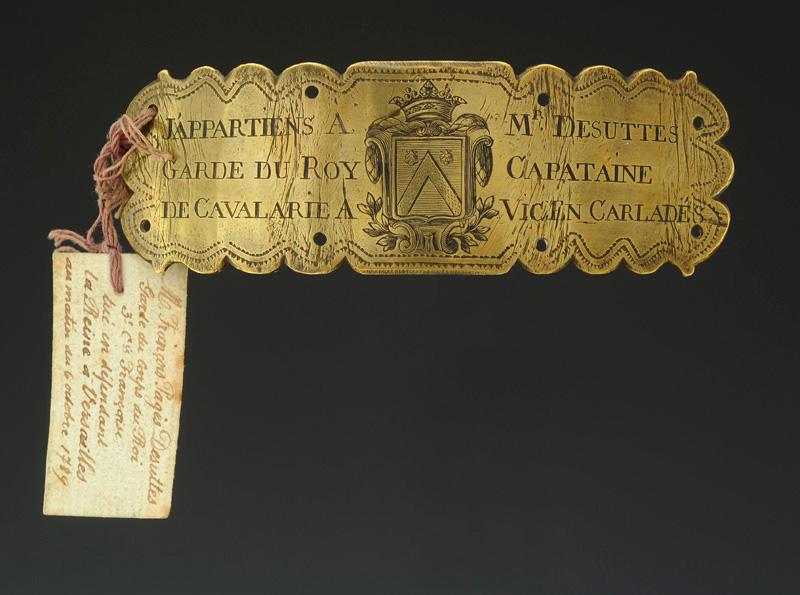 JAPPARTIENS A Mʳ DESUTTES
GARDE DU ROY CAPATAINE
DE CAVALARIE A VIC EN CARLADÉS
Mʳ François Pagès Desuttes
Garde du corps du Roi
3ᵉ Cⁱᵉ Française
tué en défendant
la Reine à Versailles
au matin du 6 octobre 1789